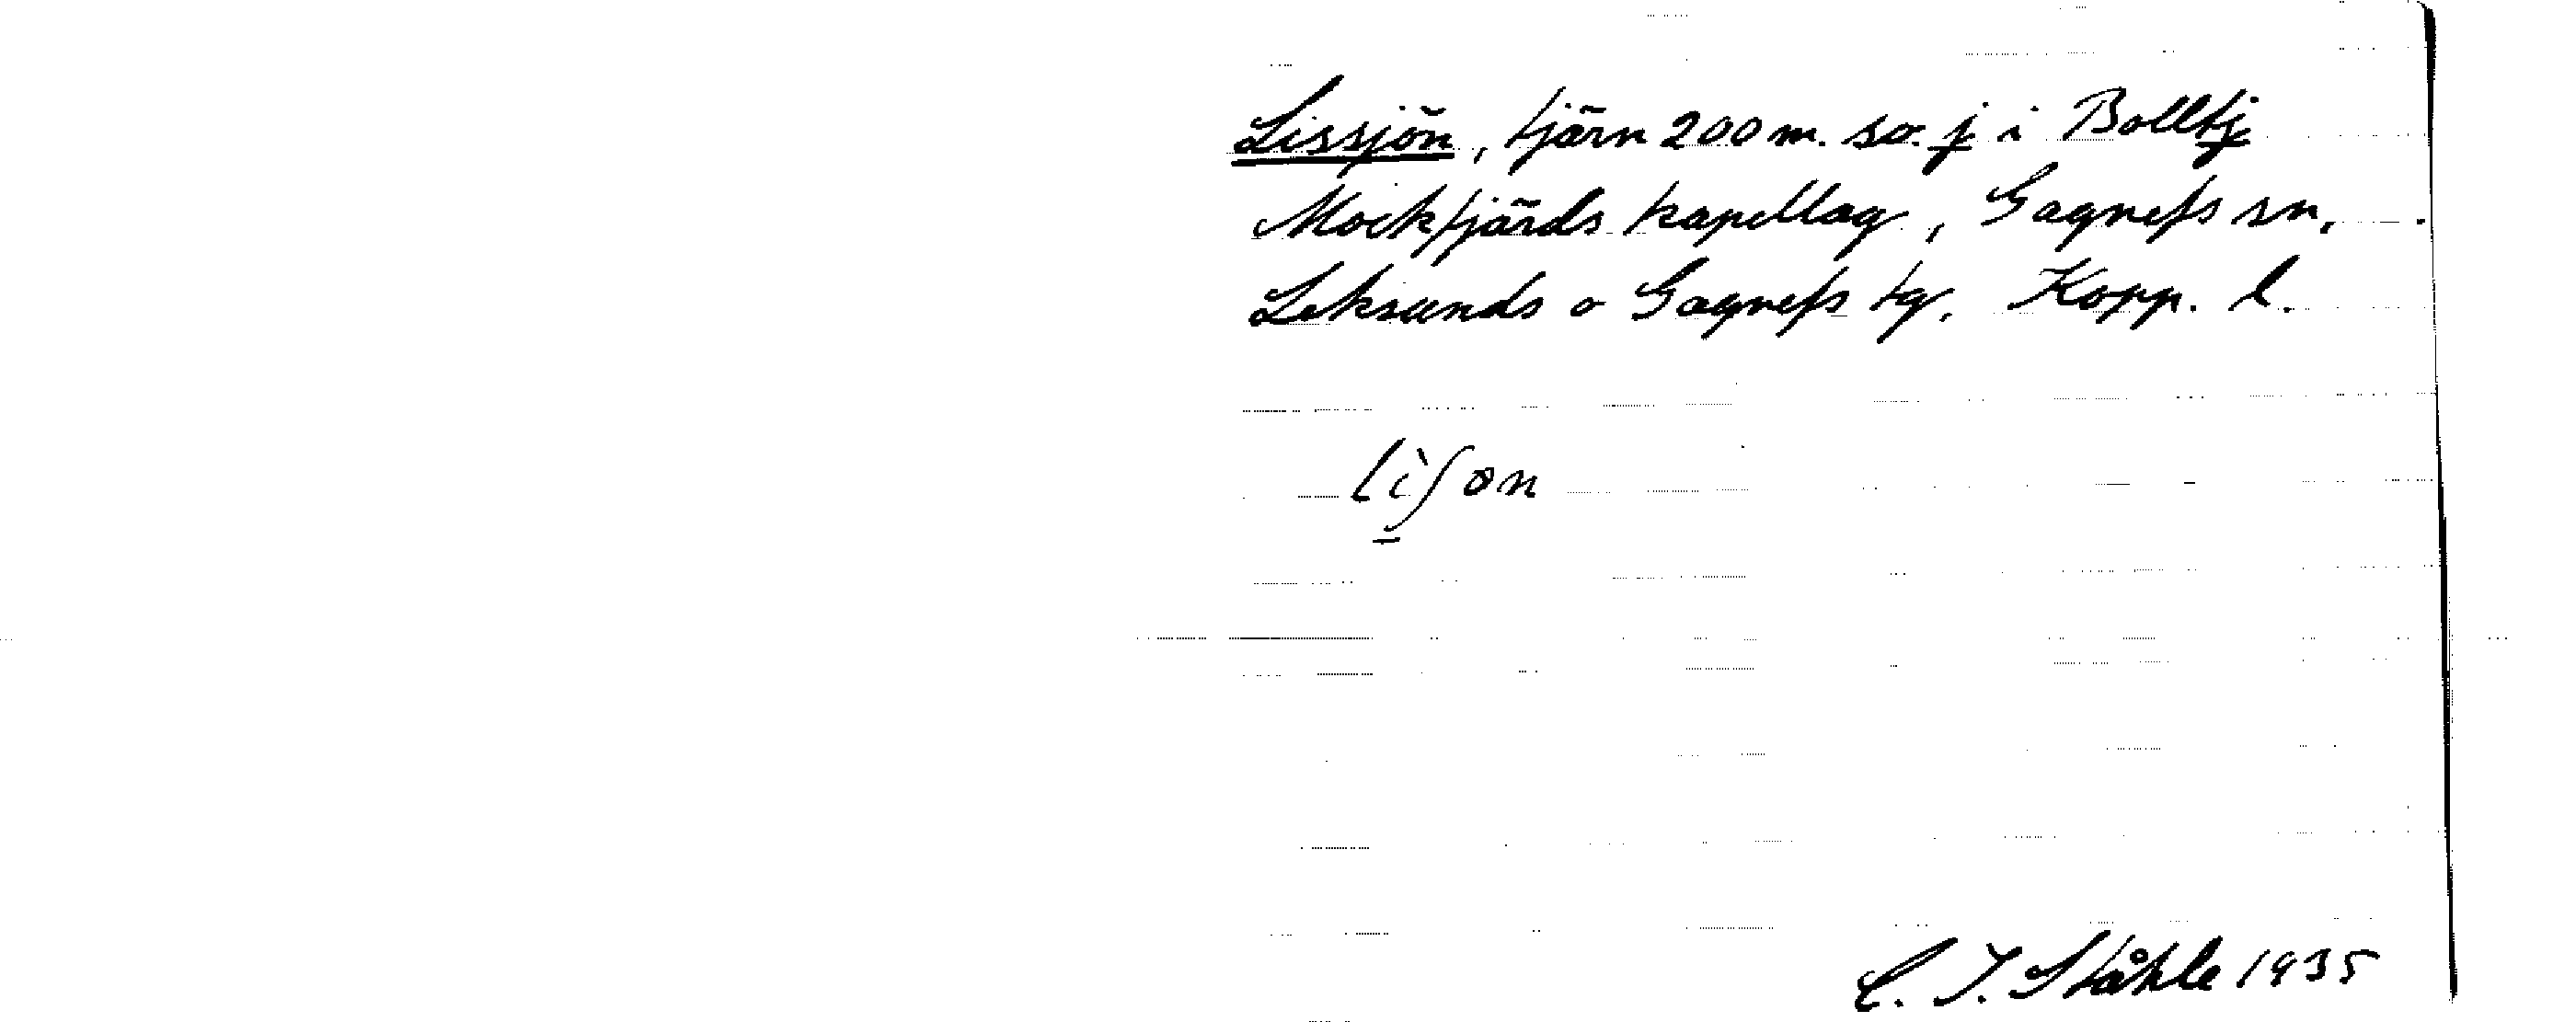 Lissjön, tjärn 200 m. sv. f i Bolltj
Mockfjärds kapellag, Gagnefs sn,
Leksands o Gagnefs tg. Kopp. l.
lìʃon
C. I. Ståhle 1935